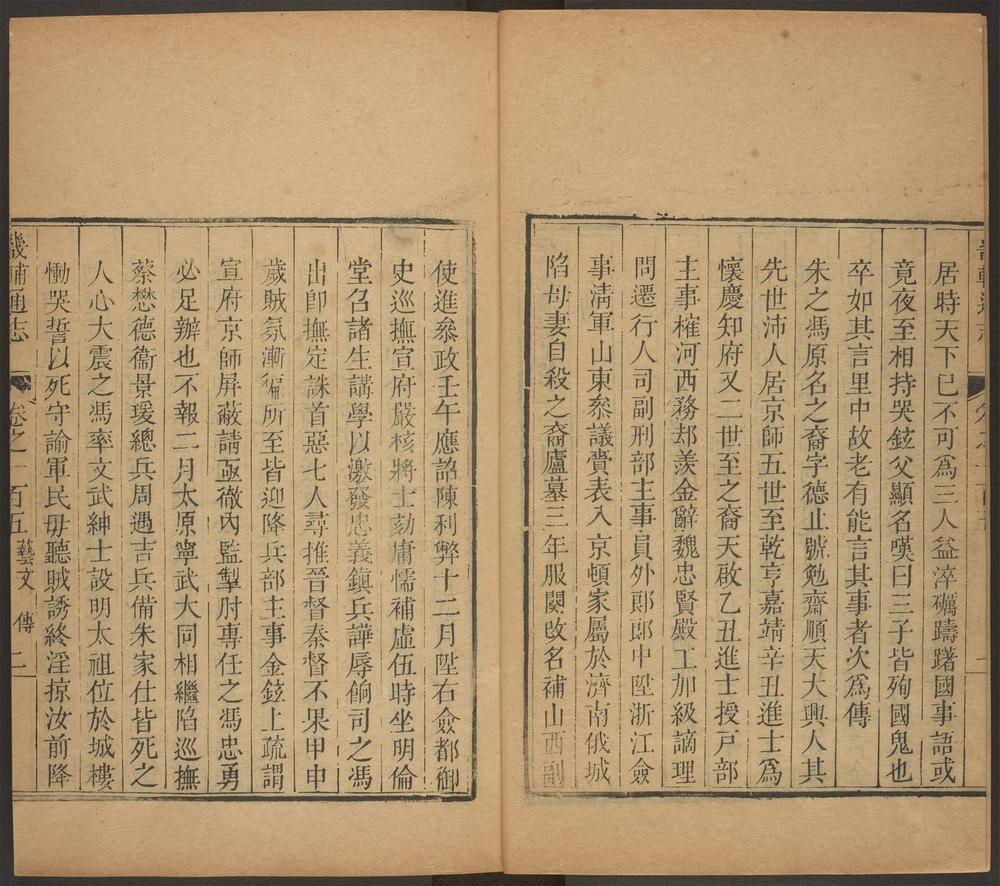 居時天下已不可爲三人益淬礪躊躇國事語或
竟夜至相持哭鉉父顯名嘆曰三子皆殉國鬼也
卒如其言里中故老有能言其事者次爲傳
朱之馮原名之裔字德止號勉齋順天大興人其
先世沛人居京師五世至乾亨嘉靖辛丑進士爲
懷慶知府又二世至之裔天啟乙丑進士授戸部
主事榷河西務却羨金辭魏忠賢殿工加級謫理
問遷行人司副刑部主事員外郎郎中陞浙江僉
事淸軍山東叅議賫表入京頓家屬於濟南俄城
陷母妻自殺之裔廬墓三年服闋攺名補山西副
使進叅政壬午應詔陳利弊十二月陞右僉都御
史巡撫宣府嚴核將士劾庸懦補虛伍時坐明倫
堂召諸生講學以激發忠義鎭兵譁辱餉司之馮
出卽撫定誅首惡七人尋推晉督秦督不果甲申
歲賊氛漸徧所至皆迎降兵部主事金鉉上疏謂
宣府京師屏蔽請亟徹內監掣肘專任之馮忠勇
必足辦也不報二月太原寧武大同相繼陷巡撫
蔡懋德衞景瑗總兵周遇吉兵備朱家仕皆死之
人心大震之馮率文武紳士設明太祖位於城樓
慟哭誓以死守諭軍民毋聽賊誘終淫掠汝前降
畿輔通志
卷之一百五 藝文 傳 二